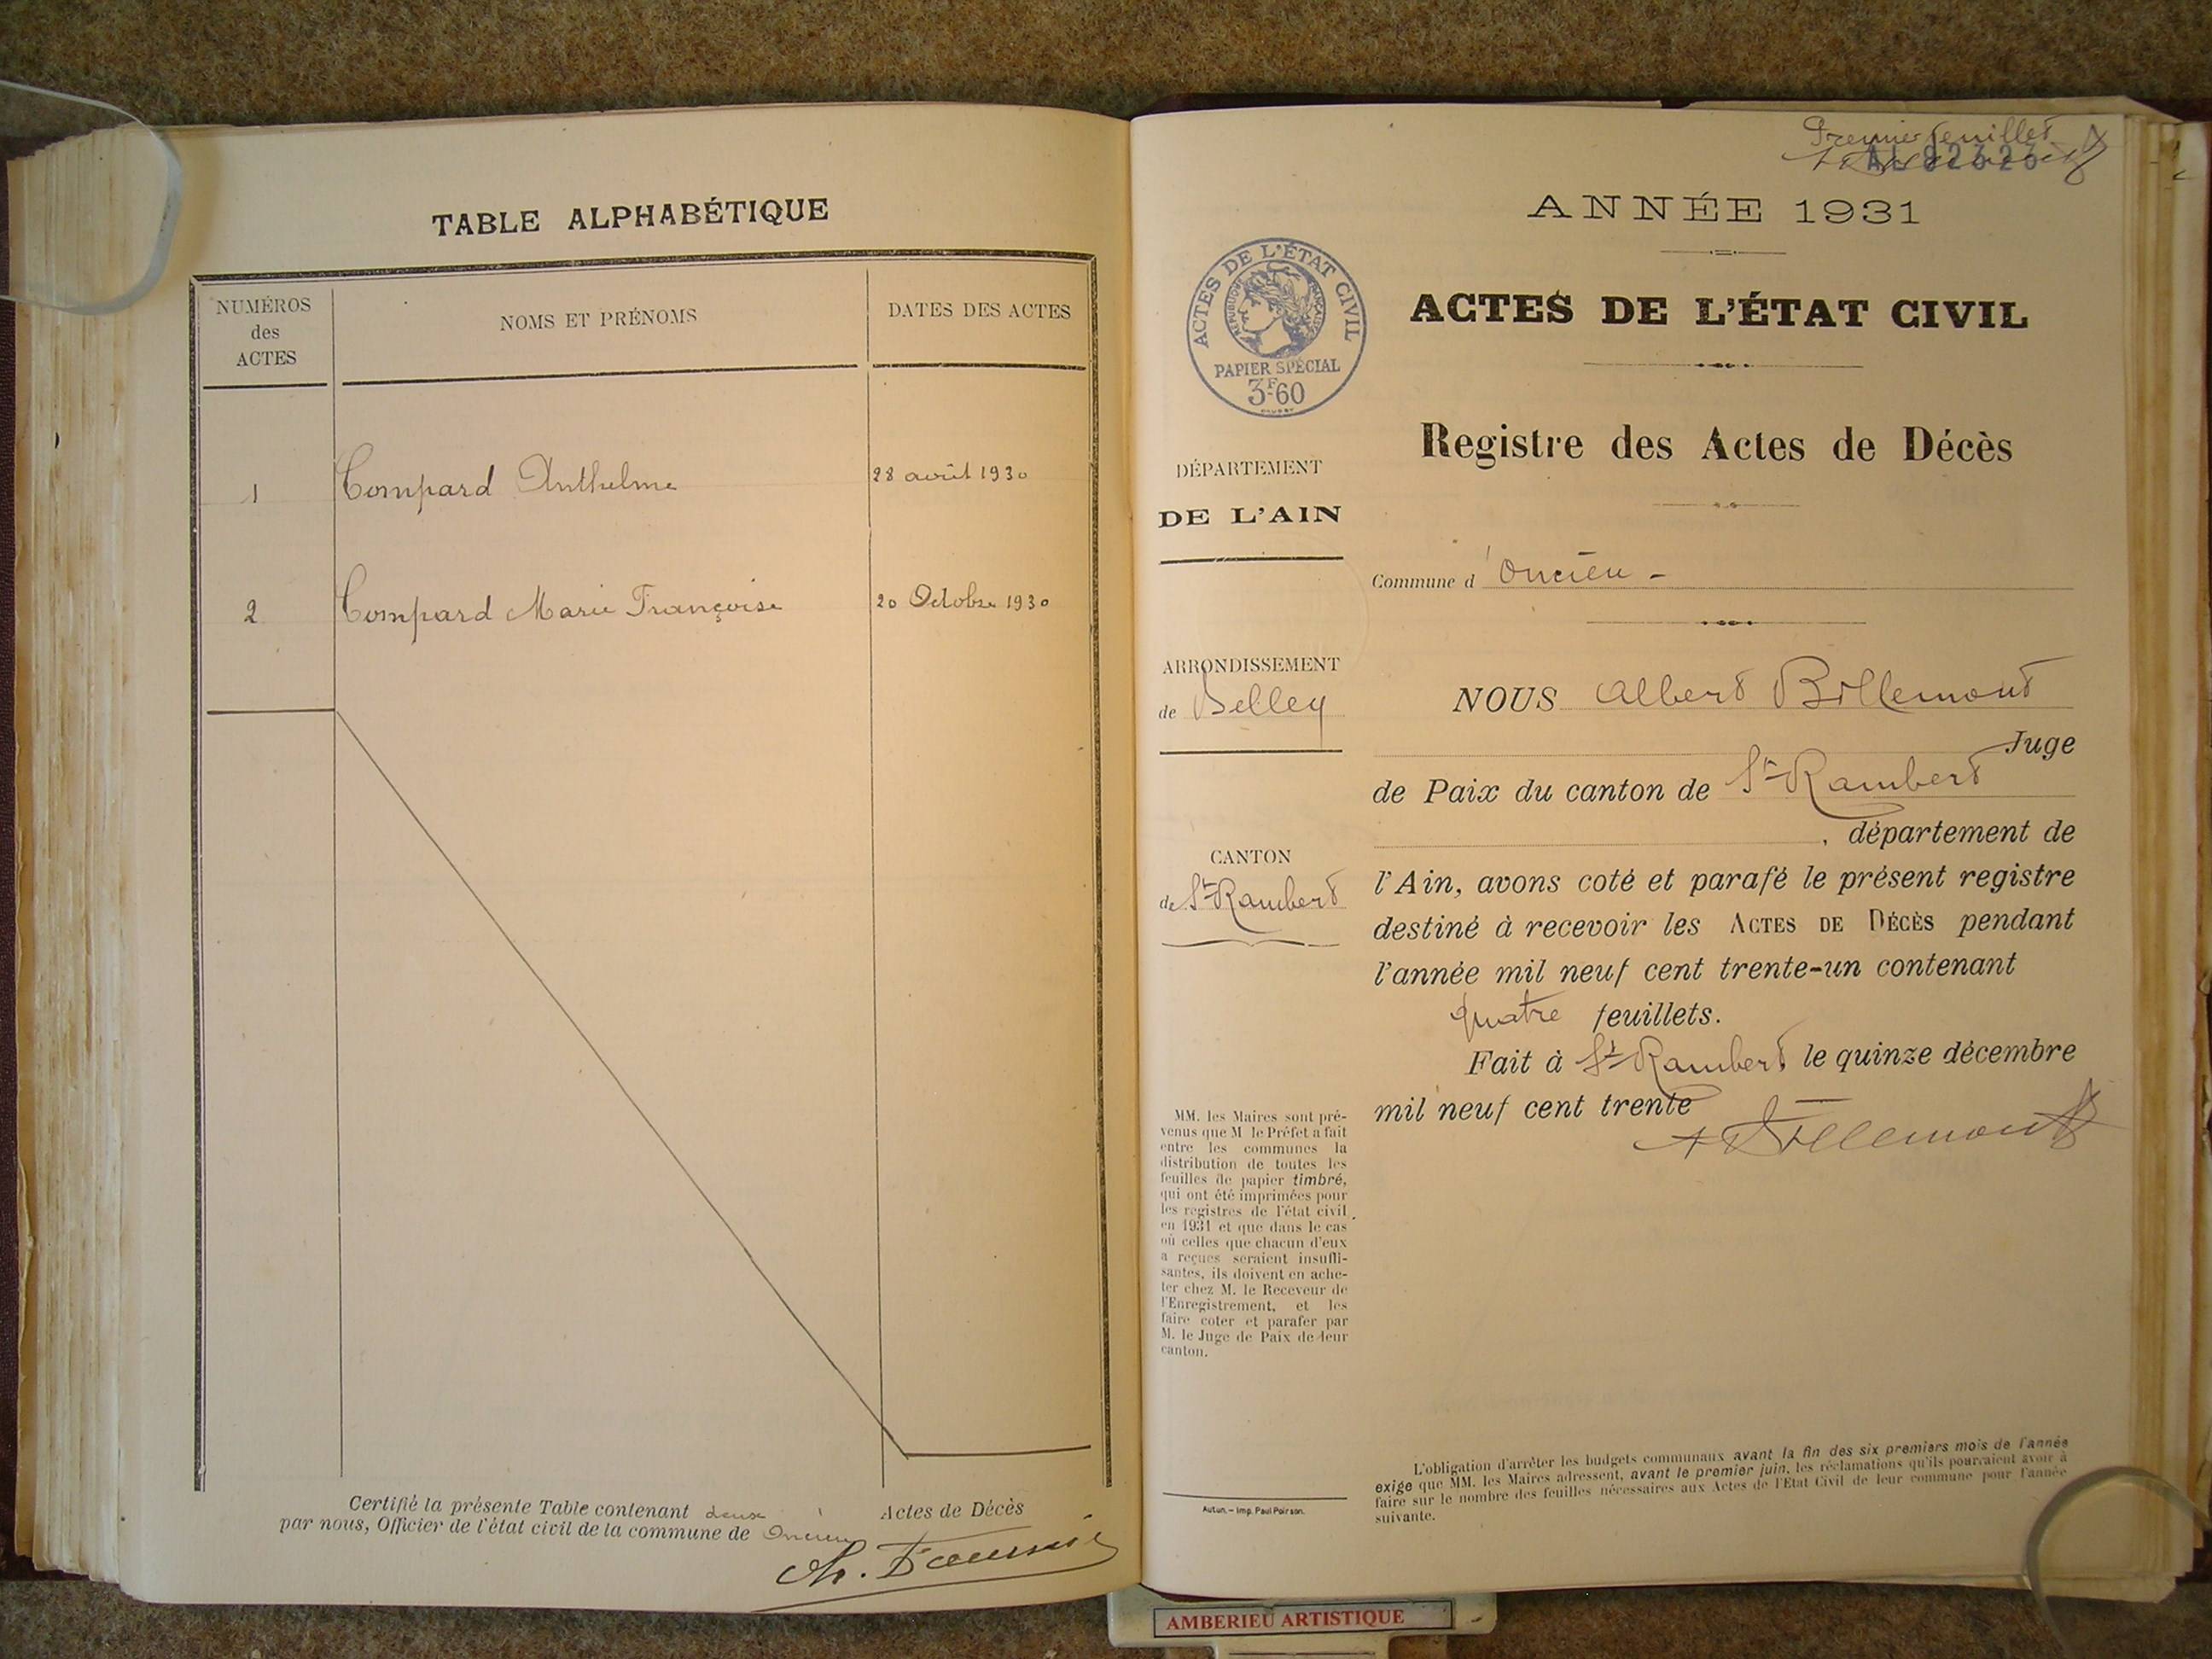 TABLE ALPHABÉTIQUE
NUMÉROS
des
ACTES
NOMS ET PRÉNOMS
DATES DES ACTES
1 Compard Anthelme 28 août 1930
2 Compard Marie Françoise 20 Octobre 1930
Certifié la présente Table contenant deux Actes de Décès
par nous, Officier de l'état civil de la commune de Oncieu
Premier feuillet
AL 82323
ANNÉE 1931
ACTES DE L'ÉTAT CIVIL
RÉPUBLIQUE FRANÇAISE
PAPIER SPÉCIAL
3F60
ACTES DE L'ÉTAT CIVIL
Registre des Actes de Décès
DÉPARTEMENT
DE L'AIN
Commune d'Oncieu -
ARRONDISSEMENT
de Belley
CANTON
de St Rambert
NOUS Albert Billemont
Juge
de Paix du canton de St Rambert
, département de
l'Ain, avons coté et parafé le présent registre
destiné à recevoir les ACTES DE DÉCÈS pendant
l'année mil neuf cent trente-un contenant
quatre feuillets.
Fait à St Rambert le quinze décembre
mil neuf cent trente
A Billemont
MM. les Maires sont pré-
venus que M le Préfet a fait
entre les communes la
distribution de toutes les
feuilles de papier timbré,
qui ont été imprimées pour
les registres de l'état civil
en 1931 et que dans le cas
où celles que chacun d'eux
a reçues seraient insuffi-
santes, ils doivent en ache-
ter chez M. le Receveur de
l'Enregistrement, et les
faire coter et parafer par
M. le Juge de Paix de leur
canton.
Autun. – Imp. Paul Poirson.
L'obligation d'arrêter les budgets communaux avant la fin des six premiers mois de l'année
exige que MM. les Maires adressent, avant le premier juin, les réclamations qu'ils pourraient avoir à
faire sur le nombre des feuilles nécessaires aux Actes de l'Etat Civil de leur commune pour l'année
suivante.
AMBERIEU ARTISTIQUE